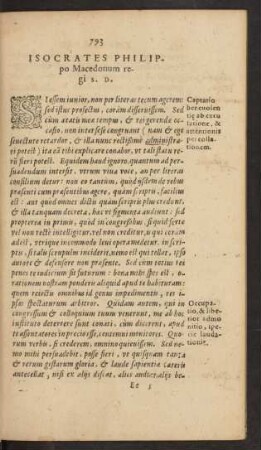 793
ISOCRATES PHILIP-
po Macedonum re-
gi S. D.
SI essem iunior, non per literas tecum agerem:
sed istuc profectus, coràm disseruissem. Sed
cùm ætatis meæ tempus, & rei gerendæ oc-
casio, non inter sese congruant (nam & ego
senectute retardor, & illa nunc rectissimè administra-
ri potest) ita ea tibi explicare conabor, ut tali statu re-
rū fieri potest. Equidem haud ignoro, quantum ad per-
suadendum intersit, utrum viua voce, an per literas
consilium detur: non eo tantùm, quòd
presenti cum præsentibus agere, quàm scriptis, facilius
est: aut quòd omnes dictis quàm scriptis plus credunt,
& illa tanquam decreta, hæc ut figmenta audiunt: sed
propterea in primo, quòd in congressibus, siquid aut
non rectè intelligitur, vel non creditur, is qui coram
adest, in utroque incommodo leui opera medetur. in scri-
ptis, si tale incideris, nemo est qui tollat, ipso
autore & defensore non præsente. Sed
te iudicium sit futurum: bona mihi spes est,
nationem nostram pondus aliquod apud te habituram:
quem reiectis omnibus id genus impedimentis, rei
ipsius spectaturum arbitror. Quidam autem, qui in
congressum & colloquium tuum venerunt, me ab hoc
instituto deterrere sunt conati, cùm dicerent, apud
te assentatores in precio esse, censores
rum verbis, si crederem, omnino quieuissem. Sed ne-
mo mihi persuadebit, posse fieri, ut quisquam tanta
& rerum gestarum gloria, & laude sapientiæ cæteris
antecellat, nisi ex alijs discat, alios audiat, alijs be-
Ee 5
Captatio
beneuolen
tię ab excu
satione, &
attentionis
per
tionem.
Occupa-
tio, & libe-
rior admo
nitio, spe-
cie lauda-
tionis.